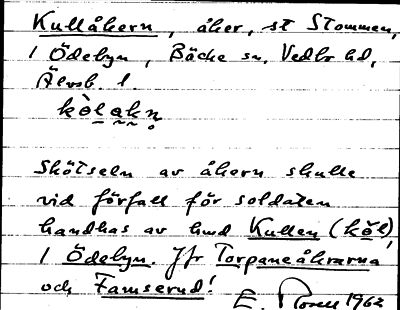 Kullåkern, åker, st Stommen,
1 Ödebyn, Bäcke sn, Vedbo hd,
Älvsb. l.
kòlakn̥
Skötseln av åkern skulle
vid förfall för soldaten
handhas av hmd Kullen (kol),
1 Ödebyn. Jfr Torpaneåkrarna
och Famserud!
E. Rosell 1962